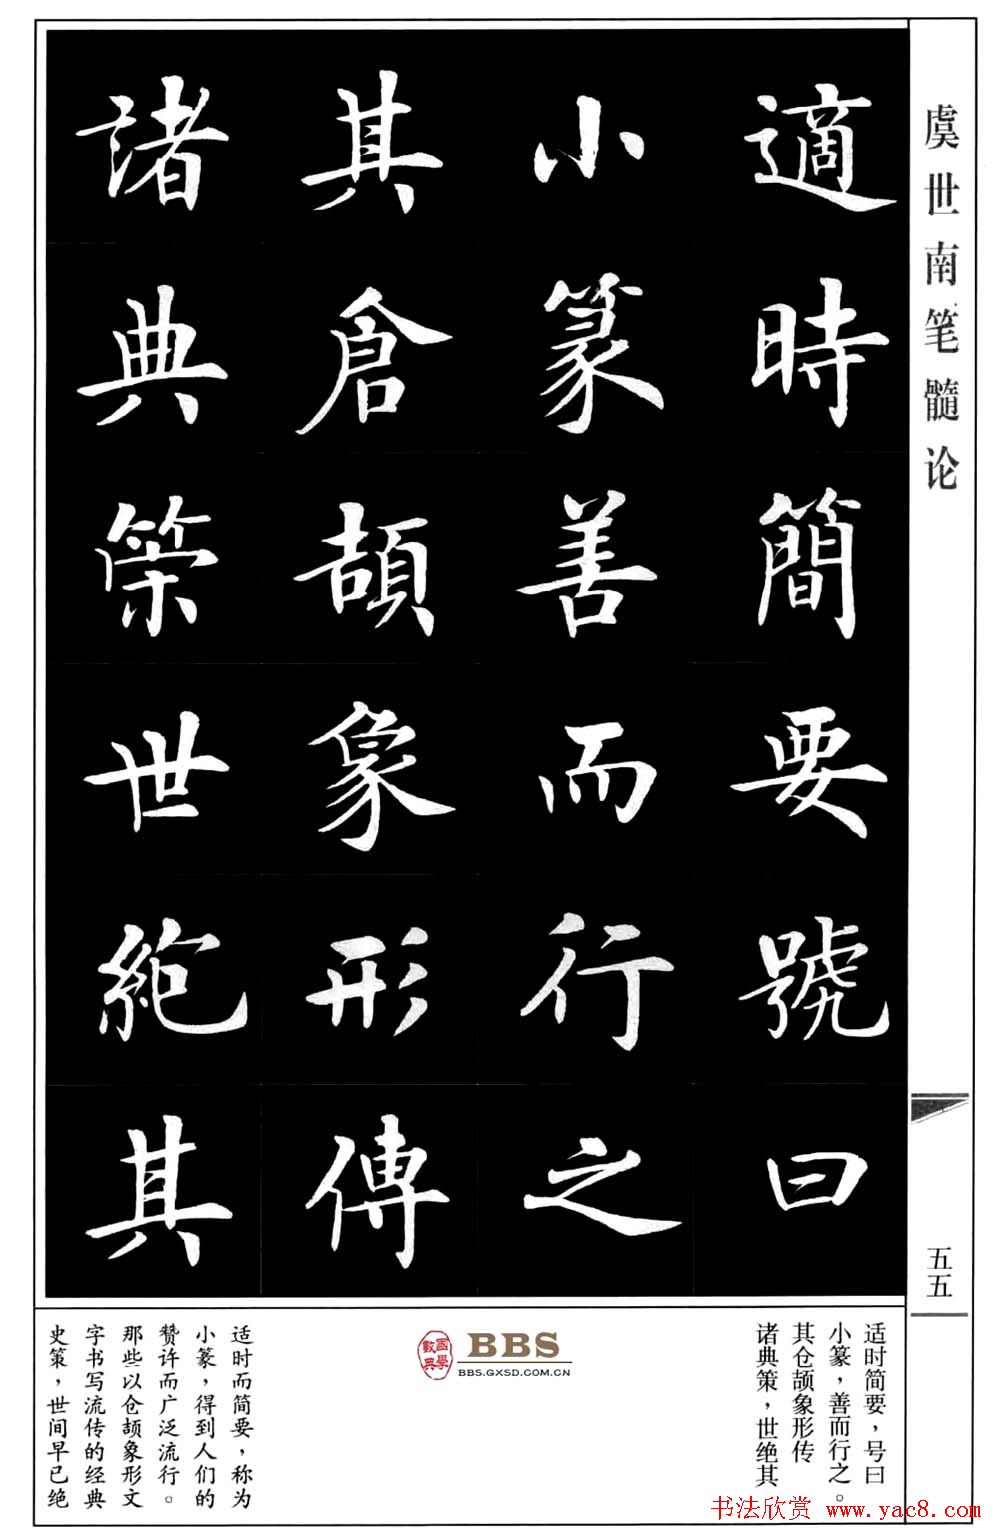 虞世南笔髓论
適時簡要號曰
小篆善而行之
其倉頡象形傳
諸典策世絶其
五五
适时简要，号曰
小篆，善而行之。
其仓颉象形传
诸典策，世绝其
國學數典
BBS
BBS.GXSD.COM.CN
适时而简要，称为
小篆，得到人们的
赞许而广泛流行。
那些以仓颉象形文
字书写流传的经典
史策，世间早已绝
书法欣赏 www.yac8.com